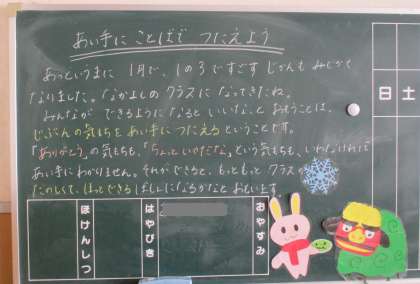 あい手に ことばで つたえよう
あっというまに 1月で、1の3ですごす じかんも みじかく
なりました。なかよしの クラスに なってきたね。
みんなが できるようになると いいなと おもうことは、
じぶんの気もちを あい手に つたえる ということです。
「ありがとう」の気もちも、「ちょっといやだな」という気もちも、いわなければ
あい手に わかりません。それができると、もっともっと クラスが
たのしくて、ほっとできる ばしょになるかなと おもいます
日 土
ほけんしつ
はやびき
おやすみ